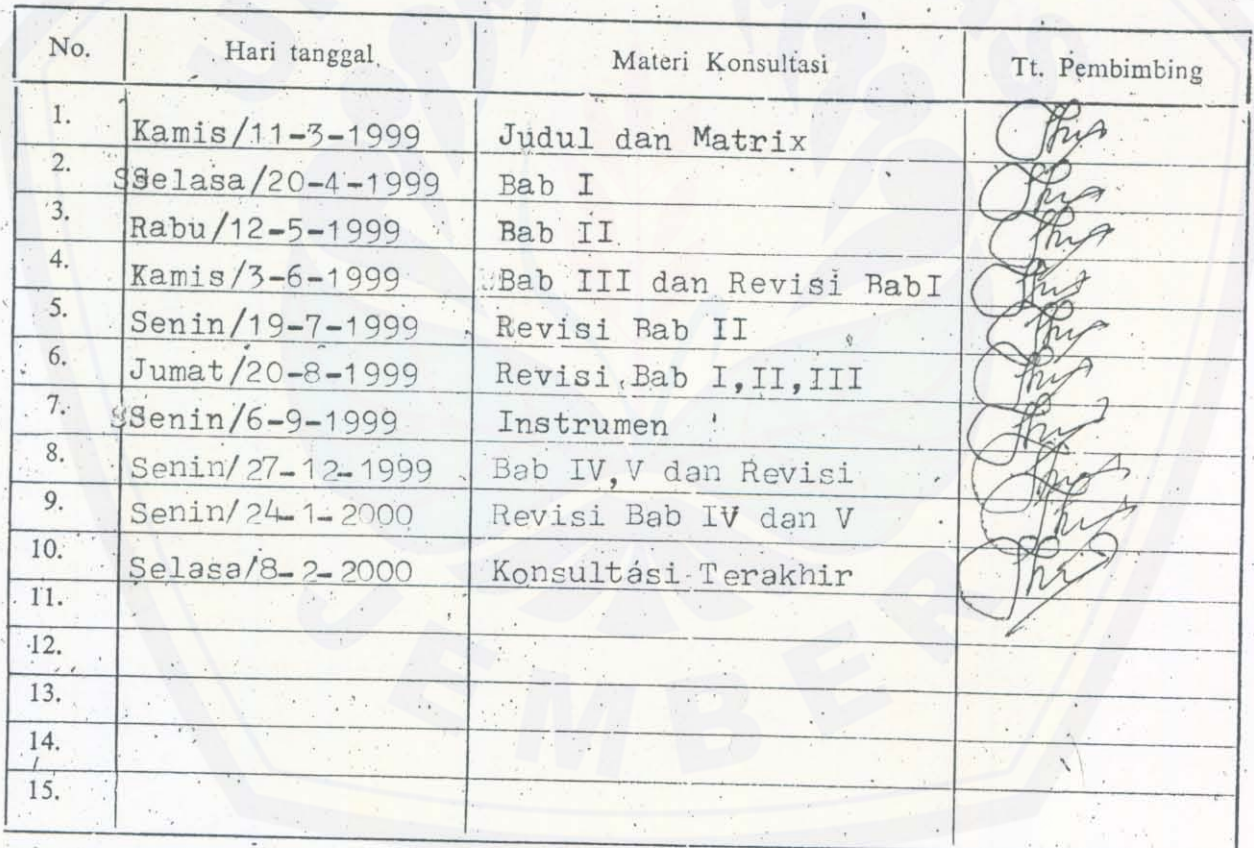 No. Hari tanggal Materi Konsultasi Tt. Pembimbing
1. Kamis/11-3-1999 Judul dan Matrix
2. SSelasa/20-4-1999 Bab I
3. Rabu/12-5-1999 Bab II
4. Kamis/3-6-1999 Bab III dan Revisi BabI
5. Senin/19-7-1999 Revisi Bab II
6. Jumat/20-8-1999 Revisi Bab I,II,III
7. SSenin/6-9-1999 Instrumen
8. Senin/27-12-1999 Bab IV,V dan Revisi
9. Senin/24-1-2000 Revisi Bab IV dan V
10. Selasa/8-2-2000 Konsultasi Terakhir
11.
12.
13.
14.
15.
JEMBER